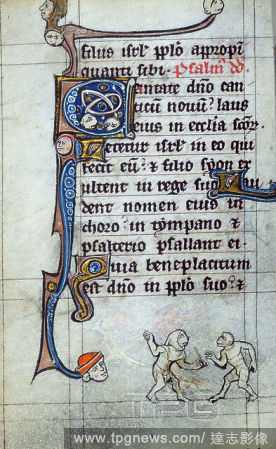 filiis isrl' pplo appropi
quanti sibi. Psalm' dd.
Cantate dno can
ticū nouū: laus
eius in ecclia scōr.
Letetur isrl' in eo qui
fecit eū: & filie syon ex
ultent in rege suo. Lau
dent nomen eius in
choro: in tympano &
psalterio psallant ei.
Quia beneplacitum
est dno in pplo suo: &
TPG
www.tpgnews.com / 達志影像